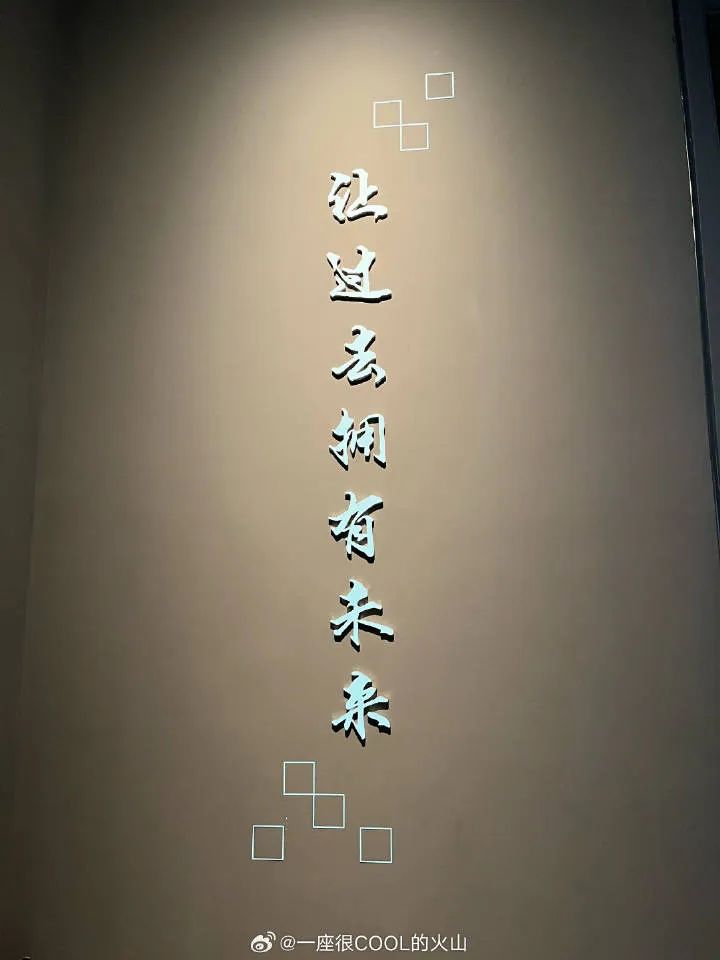 让过去拥有未来
@一座很COOL的火山